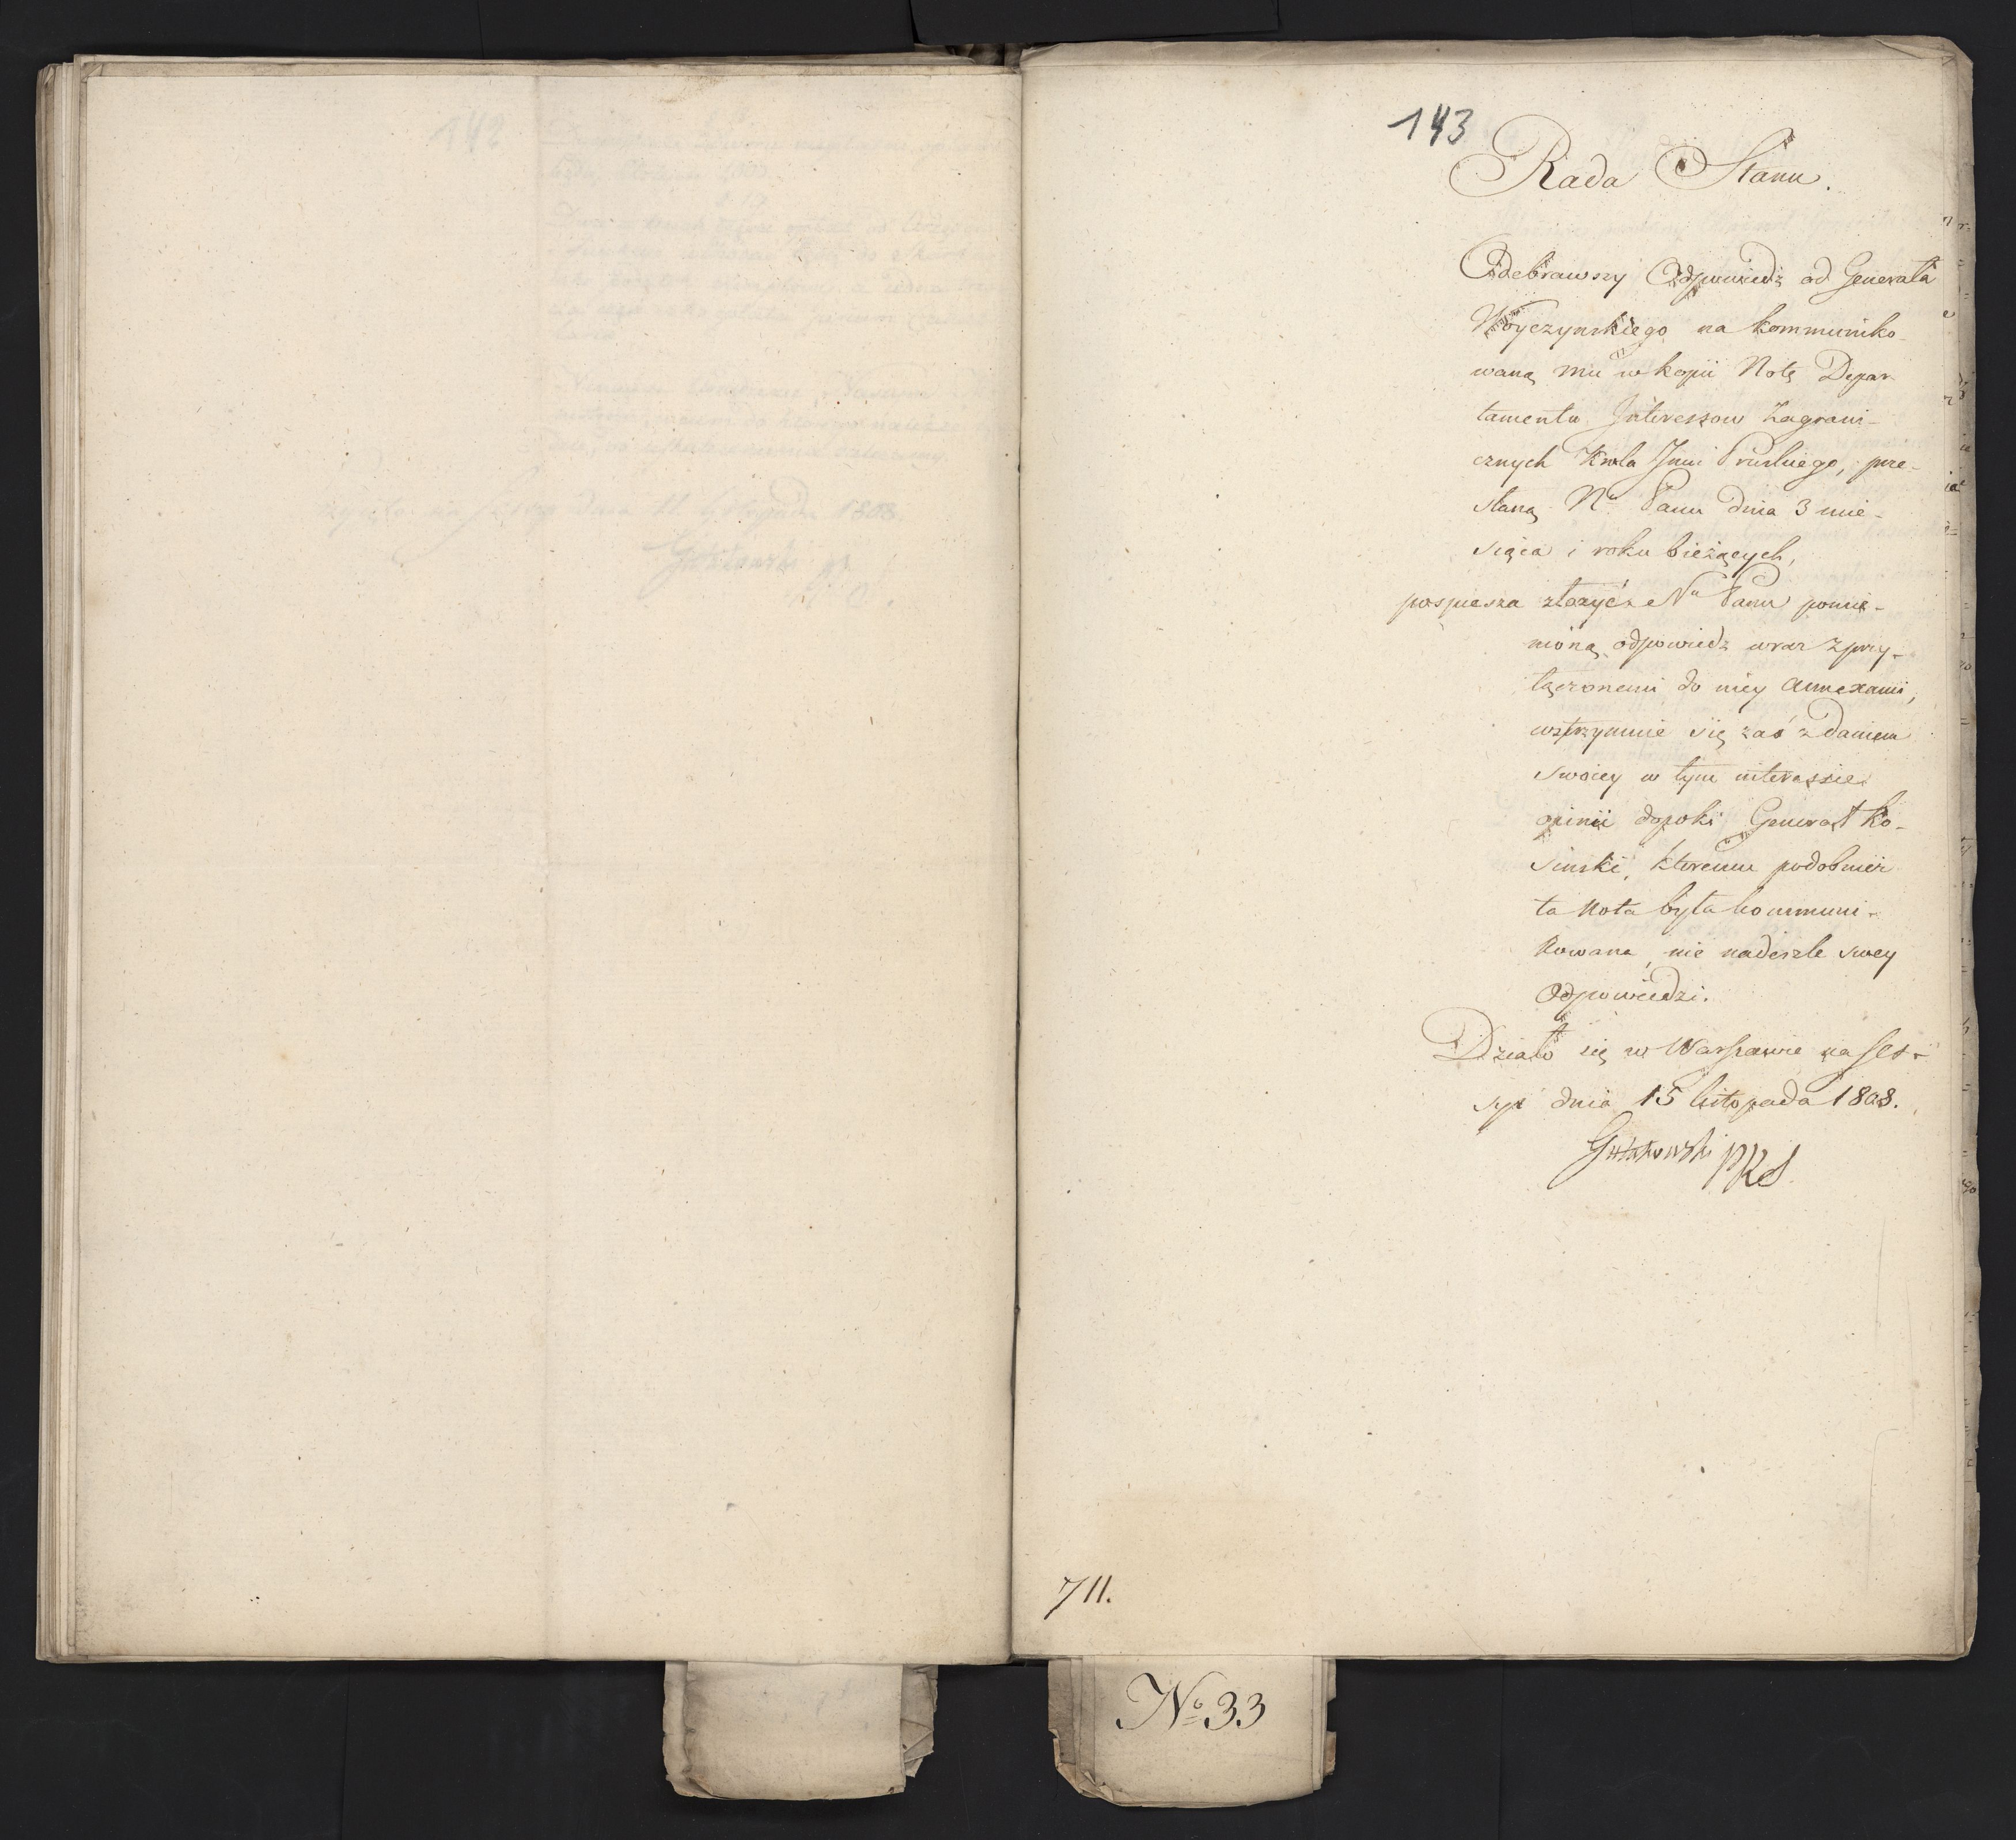 143
Rada Stanu.
Odebrawszy Odpowiedź od Generała
Woyczynskiego na kommuniko-
waną mu w kopii Notę Depar
tamentu Interessow Zagrani-
cznych Krola Jmci Pruskiego, prze-
słaną N. Panu dnia 3 mie-
siąca i roku bieżących,
pospiesza złożyć Nu Panu pomie-
nioną odpowiedz wraz z przy-
łączonemi do niey annexami,
wstrzymuie się zaś z daniem
swoiey w tym interessie
opinii dopoki Generał Ko-
sinski, ktoremu podobnież
ta Nota była kommuni-
kowana, nie nadeszle swey
Odpowiedzi.
Działo się w Warszawie na Ses-
syi dnia 15 listopada 1808.
Gutakowski PRS
711.
No 33